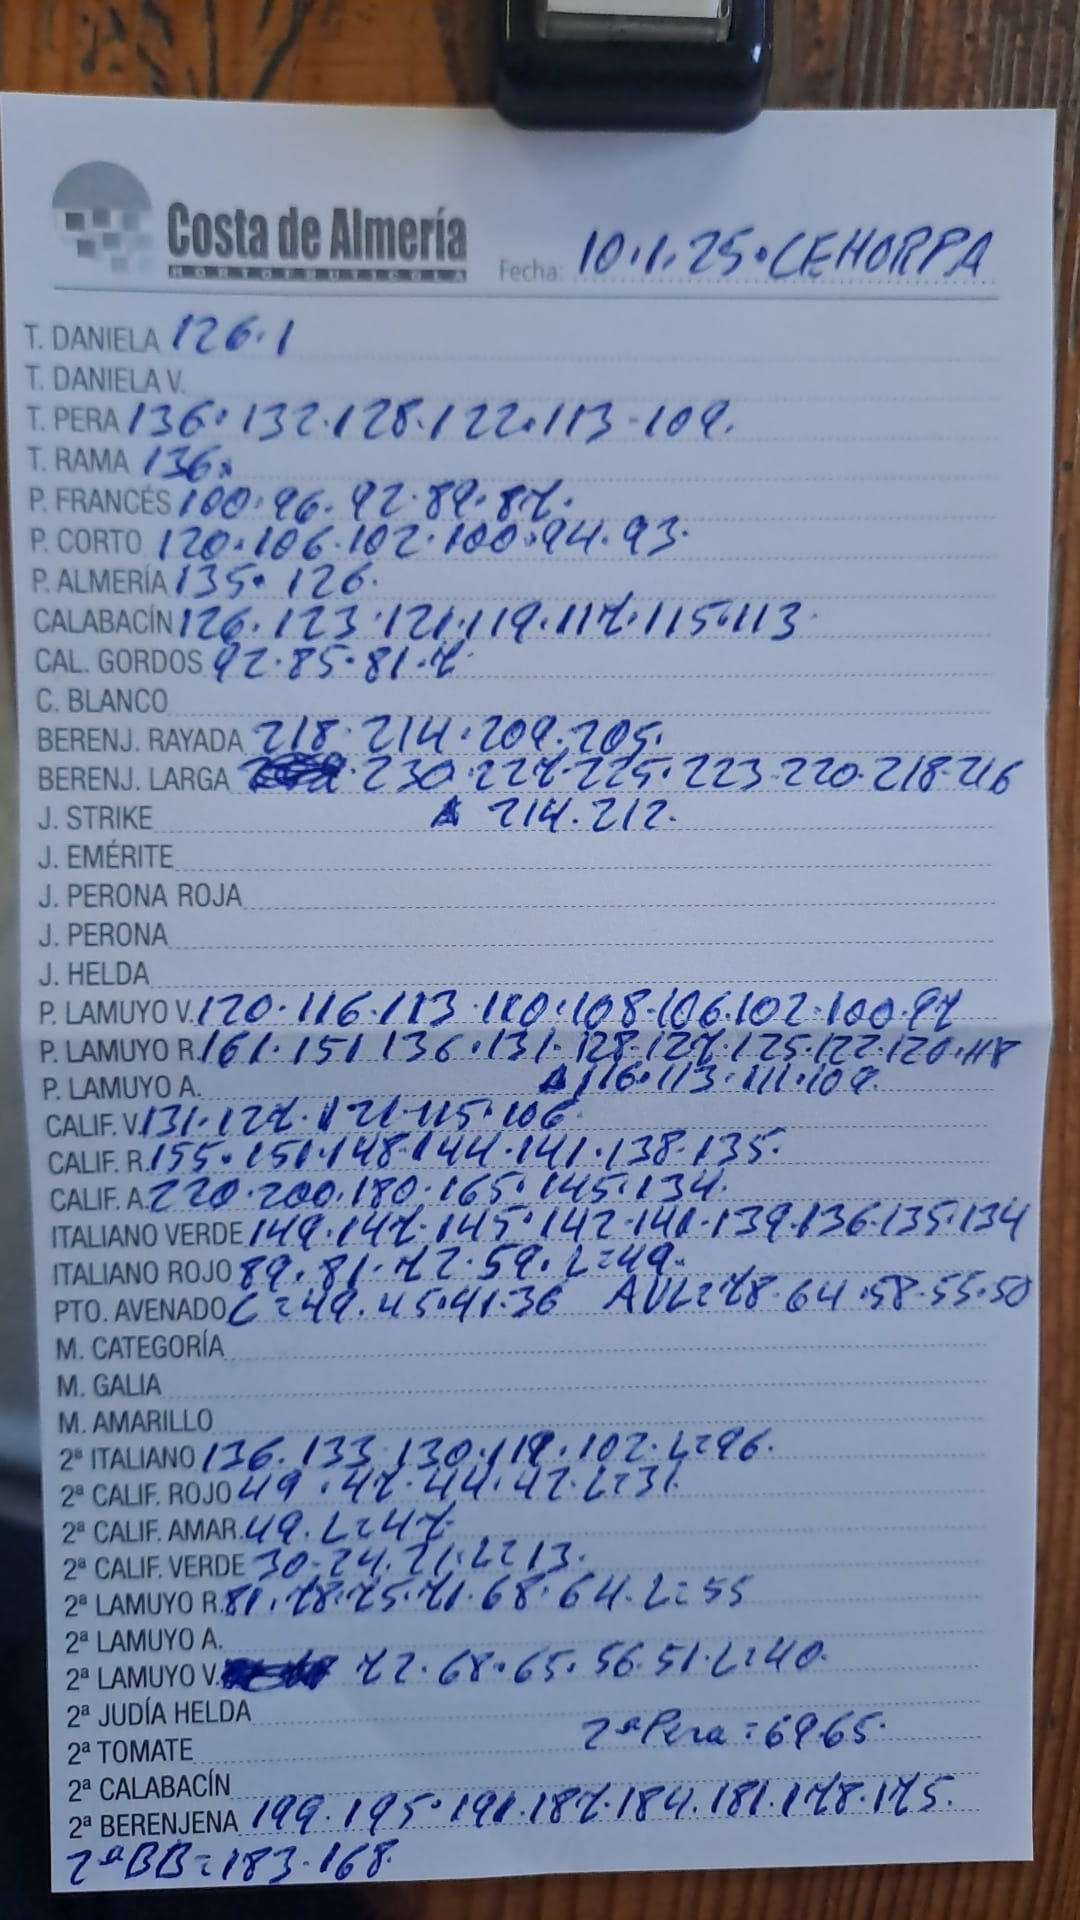 Costa de Almería
HORTOFRUTICOLA
Fecha: 10.1.25.CEHORPA
T. DANIELA 126.1
T. DANIELA V.
T. PERA 136.132.128.122.113.109.
T. RAMA 136.
P. FRANCÉS 100.96.92.89.87.
P. CORTO 120.106.102.100.94.93.
P. ALMERÍA 135.126.
CALABACÍN 126.123.121.119.117.115.113.
CAL. GORDOS 92.85.81.7
C. BLANCO
BERENJ. RAYADA 218.214.209.205.
BERENJ. LARGA 230.227.225.223.220.218.216
J. STRIKE 214.212.
J. EMÉRITE
J. PERONA ROJA
J. PERONA
J. HELDA
P. LAMUYO V. 120.116.113.110.108.106.102.100.97
P. LAMUYO R. 161.151.136.131.128.127.125.122.120.118
P. LAMUYO A. 116.113.111.109.
CALIF. V. 131.127.121.115.106.
CALIF. R. 155.151.148.144.141.138.135.
CALIF. A. 220.200.180.165.145.134.
ITALIANO VERDE 149.147.145.142.141.139.136.135.134
ITALIANO ROJO 89.81.72.59.L=49.
PTO. AVENADO C=49.45.41.36 AVL=78.64.58.55.50
M. CATEGORÍA
M. GALIA
M. AMARILLO
2ª ITALIANO 136.133.130.119.102.L=96.
2ª CALIF. ROJO 49.47.44.42.L=31.
2ª CALIF. AMAR. 49.L=47.
2ª CALIF. VERDE 30.24.21.L=13.
2ª LAMUYO R. 81.78.75.71.68.64.L=55
2ª LAMUYO A.
2ª LAMUYO V. 72.68.65.56.51.L=40.
2ª JUDÍA HELDA
2ª Pera=69.65.
2ª TOMATE
2ª CALABACÍN
2ª BERENJENA 199.195.191.187.184.181.178.175.
2ª BB=183.168.